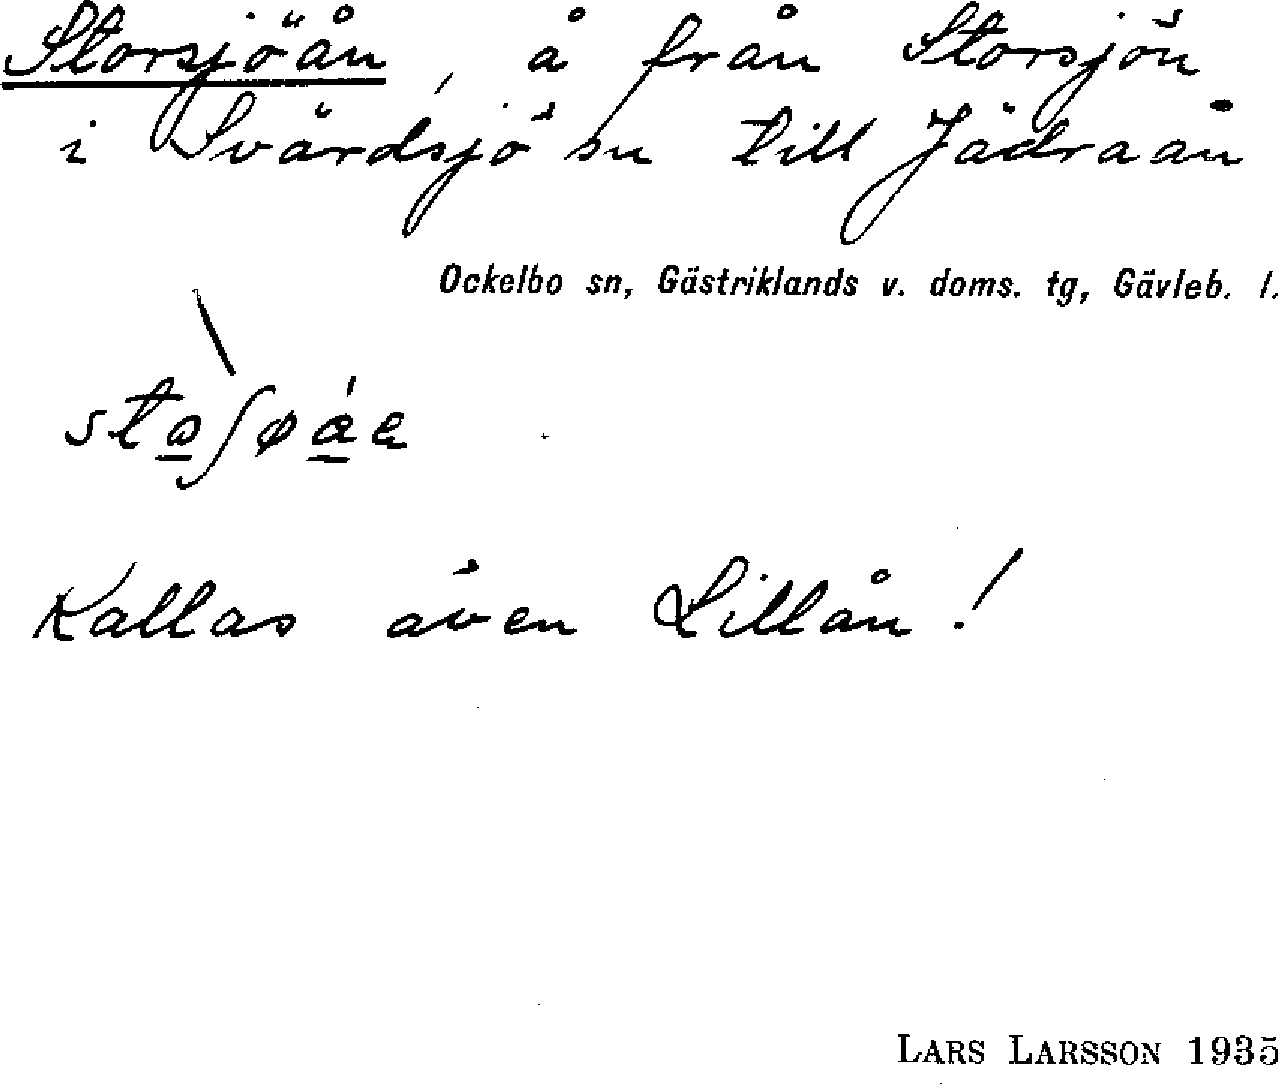 Storsjöån, å från Storsjön
i Svärdsjö sn till Jädraån
Ockelbo sn, Gästriklands v. doms. tg, Gävleb. l.
Kallas även Lillån!
LARS LARSSON 1935